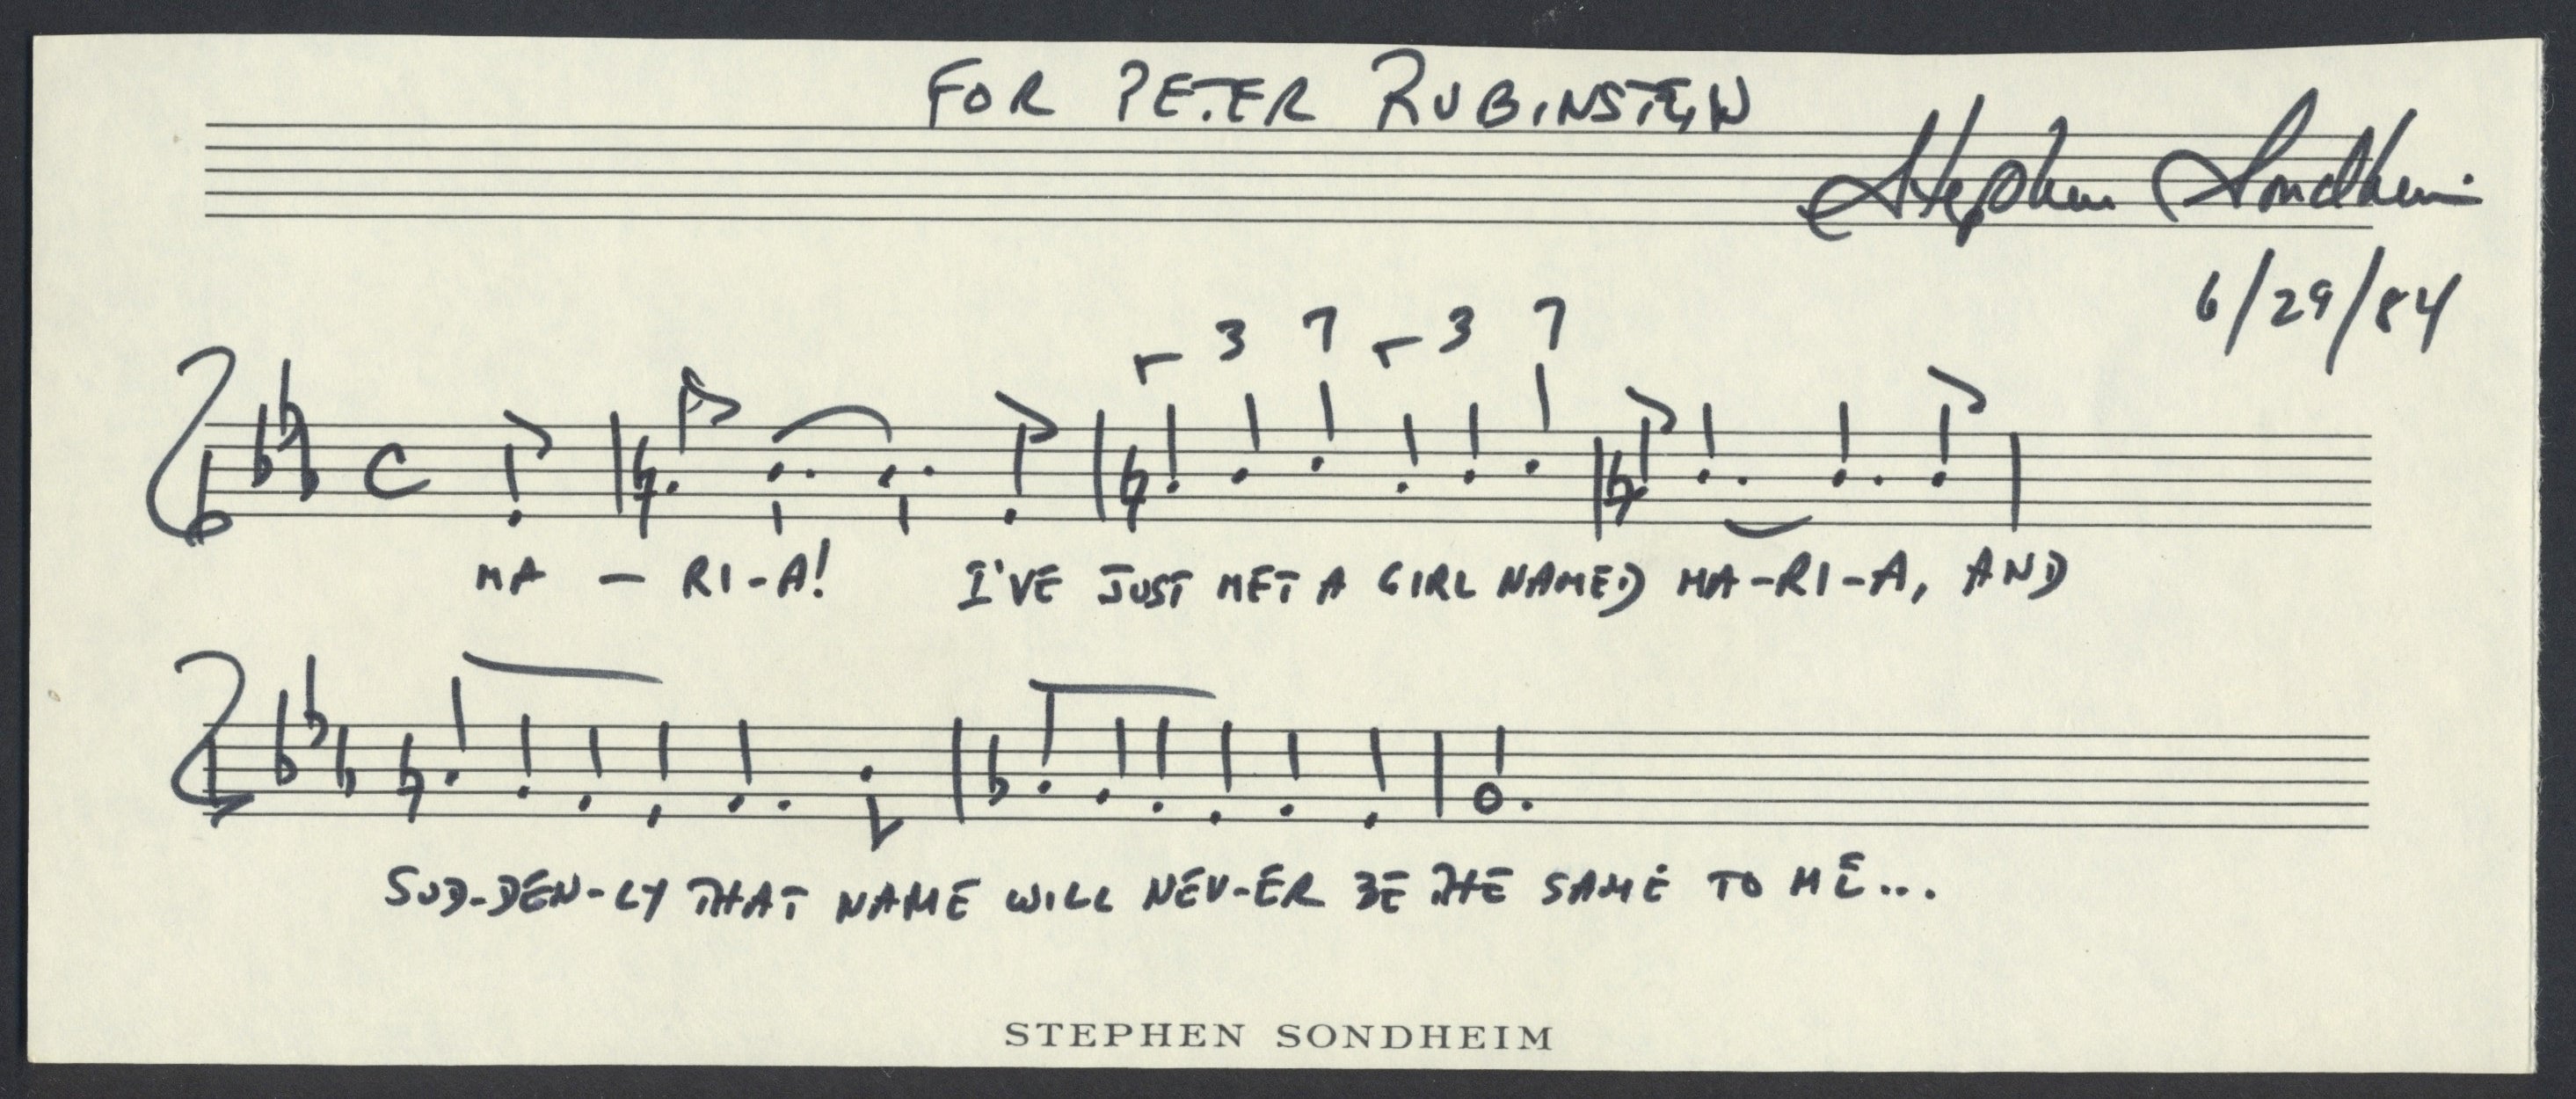 FOR PETER RUBINSTEIN
Stephen Sondheim
6/29/84
3 3
C
MA — RI-A! I'VE JUST MET A GIRL NAMED MA-RI-A, AND
SUD-DEN-LY THAT NAME WILL NEV-ER BE THE SAME TO ME...
STEPHEN SONDHEIM